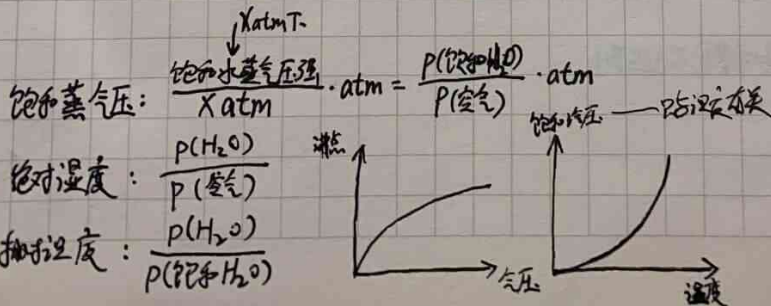 Xatm下
饱和蒸气压: 饱和水蒸气压强/X atm · atm = P(饱和H₂O)/P(空气) · atm
绝对湿度: P(H₂O)/P(空气)
相对湿度: P(H₂O)/P(饱和H₂O)
沸点
气压
饱和汽压 —— 只与温度有关
温度